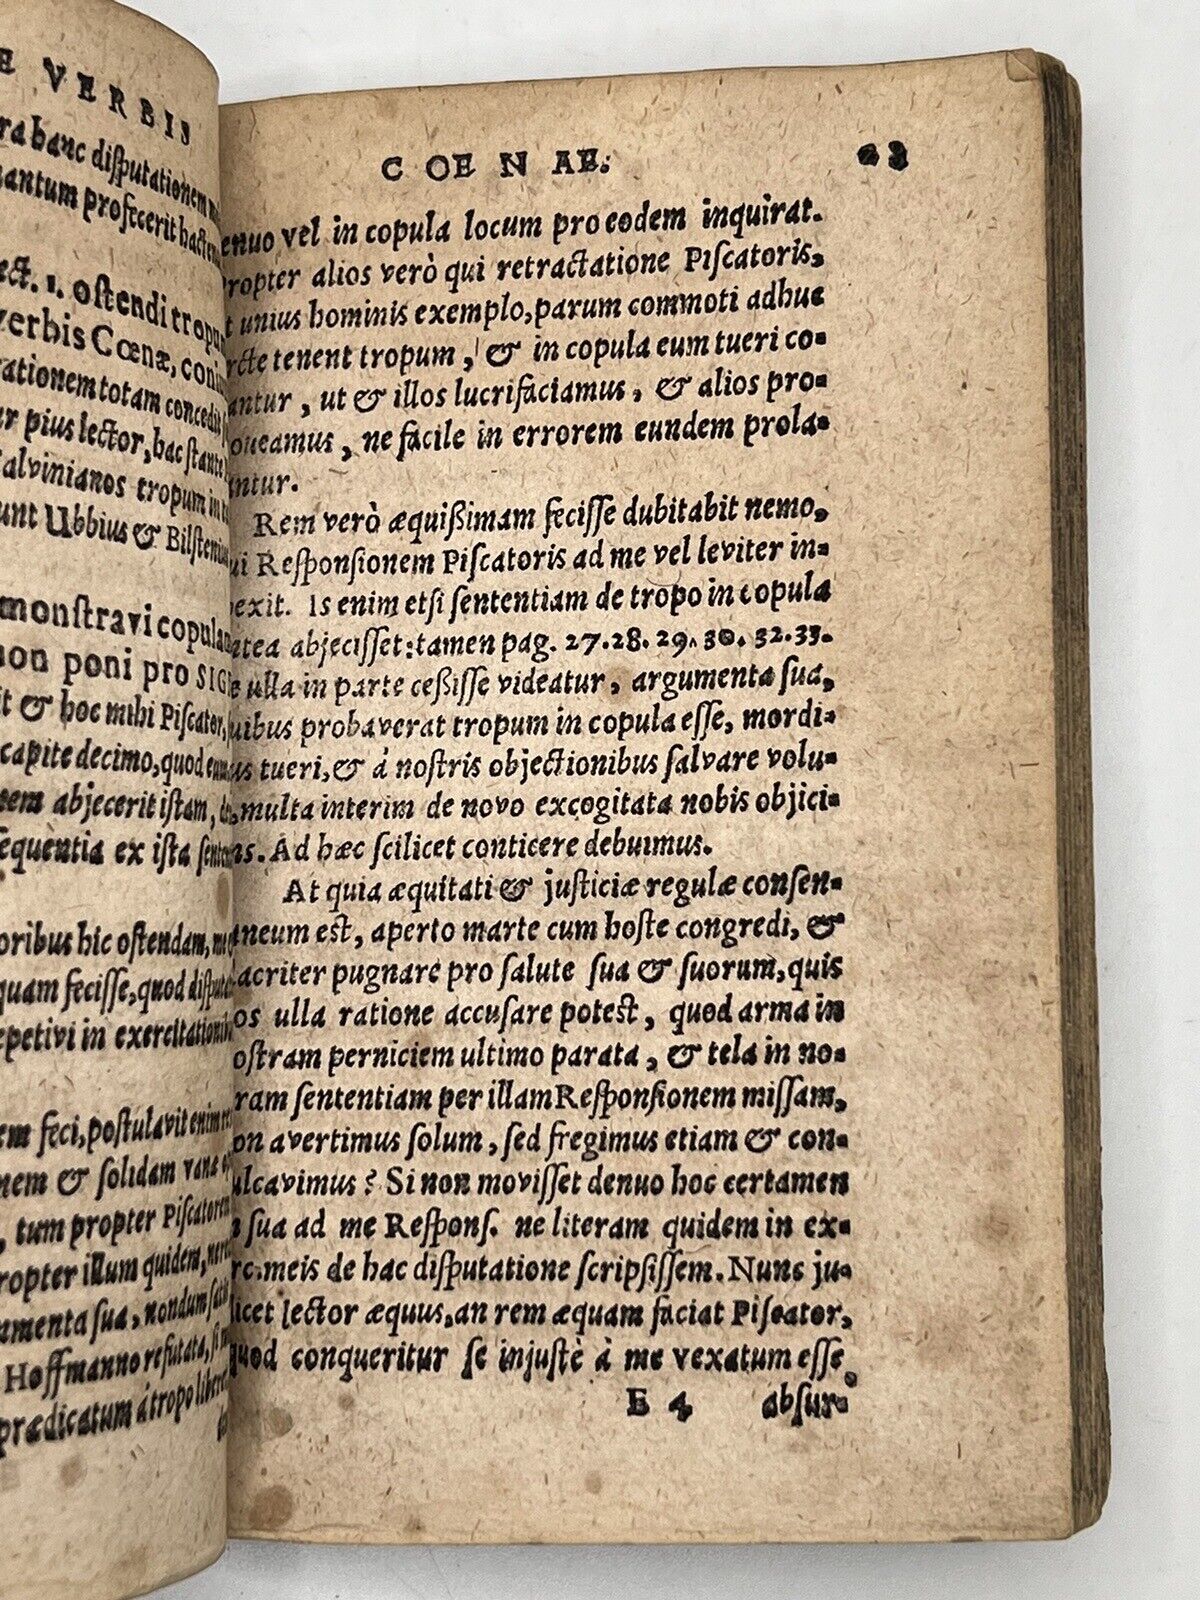 E VERBIS
ra hanc disputationem
antum profecerit hacten
ect. 1. ostendi tropum
verbis Cœnæ, coniu
rationem totam concedit
r pius lector, hac stante
alvinianos tropum in
unt Ubbius & Bilstenius
monstravi copulam
non poni pro SIG
it & hoc mihi Piscator,
capite decimo, quod eum
nem abjecerit istam,
sequentia ex ista senten
oribus hic ostendam, me
quam fecisse, quod disput
epetivi in exercitationib
em feci, postulavit enim
nem & solidam vana
, tum propter Piscatorem
ropter illum quidem,
umenta sua, nondum satis
Hoffmanno refutata,
prædicatum à tropo liber
COENAE. 23
enuo vel in copula locum pro eodem inquirat.
Propter alios verò qui retractatione Piscatoris,
t unius hominis exemplo, parum commoti adhuc
rcte tenent tropum, & in copula eum tueri co-
antur, ut & illos lucrifaciamus, & alios pro-
oueamus, ne facile in errorem eundem prola-
antur.
Rem verò æquißimam fecisse dubitabit nemo,
ui Responsionem Piscatoris ad me vel leviter in-
pexit. Is enim etsi sententiam de tropo in copula
etea abjecisset: tamen pag. 27.28.29.30.32.33.
e ulla in parte ceßisse videatur, argumenta sua,
uibus probaverat tropum in copula esse, mordi-
us tueri, & à nostris objectionibus salvare volu-
, multa interim de novo excogitata nobis objici-
ns. Ad hæc scilicet conticere debuimus.
At quia æquitati & justiciæ regulæ consen-
aneum est, aperto marte cum hoste congredi, &
acriter pugnare pro salute sua & suorum, quis
os ulla ratione accusare potest, quod arma in
ostram perniciem ultimo parata, & tela in no-
ram sententiam per illam Responsionem missam,
on avertimus solum, sed fregimus etiam & con-
ulcavimus? Si non movisset denuo hoc certamen
n sua ad me Respons. ne literam quidem in ex-
rc. meis de hac disputatione scripsissem. Nunc ju-
icet lector æquus, an rem æquam faciat Piscator,
quod conqueritur se injustè à me vexatum esse.
E 4 absur-